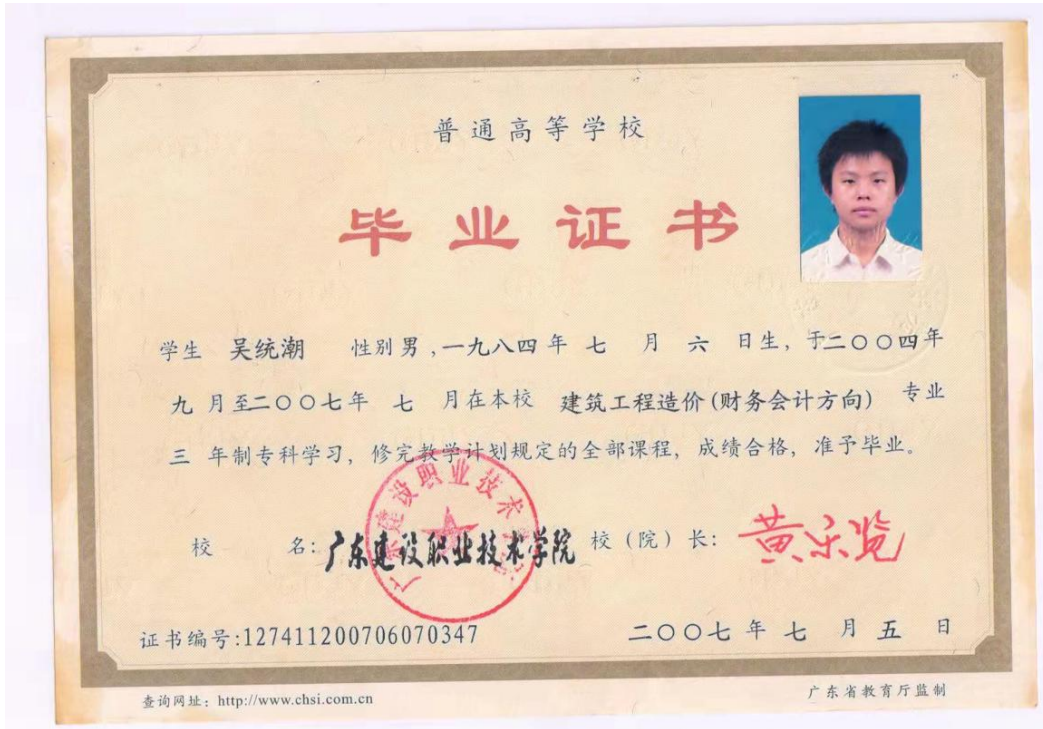 普通高等学校
毕业证书
学生 吴统潮 性别 男 ,一九八四 年 七 月 六 日生, 于二〇〇四年
九 月至二〇〇七年 七 月在本校 建筑工程造价(财务会计方向) 专业
三 年制专科学习, 修完教学计划规定的全部课程, 成绩合格, 准予毕业。
校 名: 广东建设职业技术学院 校(院)长:
证书编号:127411200706070347 二〇〇七 年 七 月 五 日
查询网址: http://www.chsi.com.cn 广东省教育厅监制